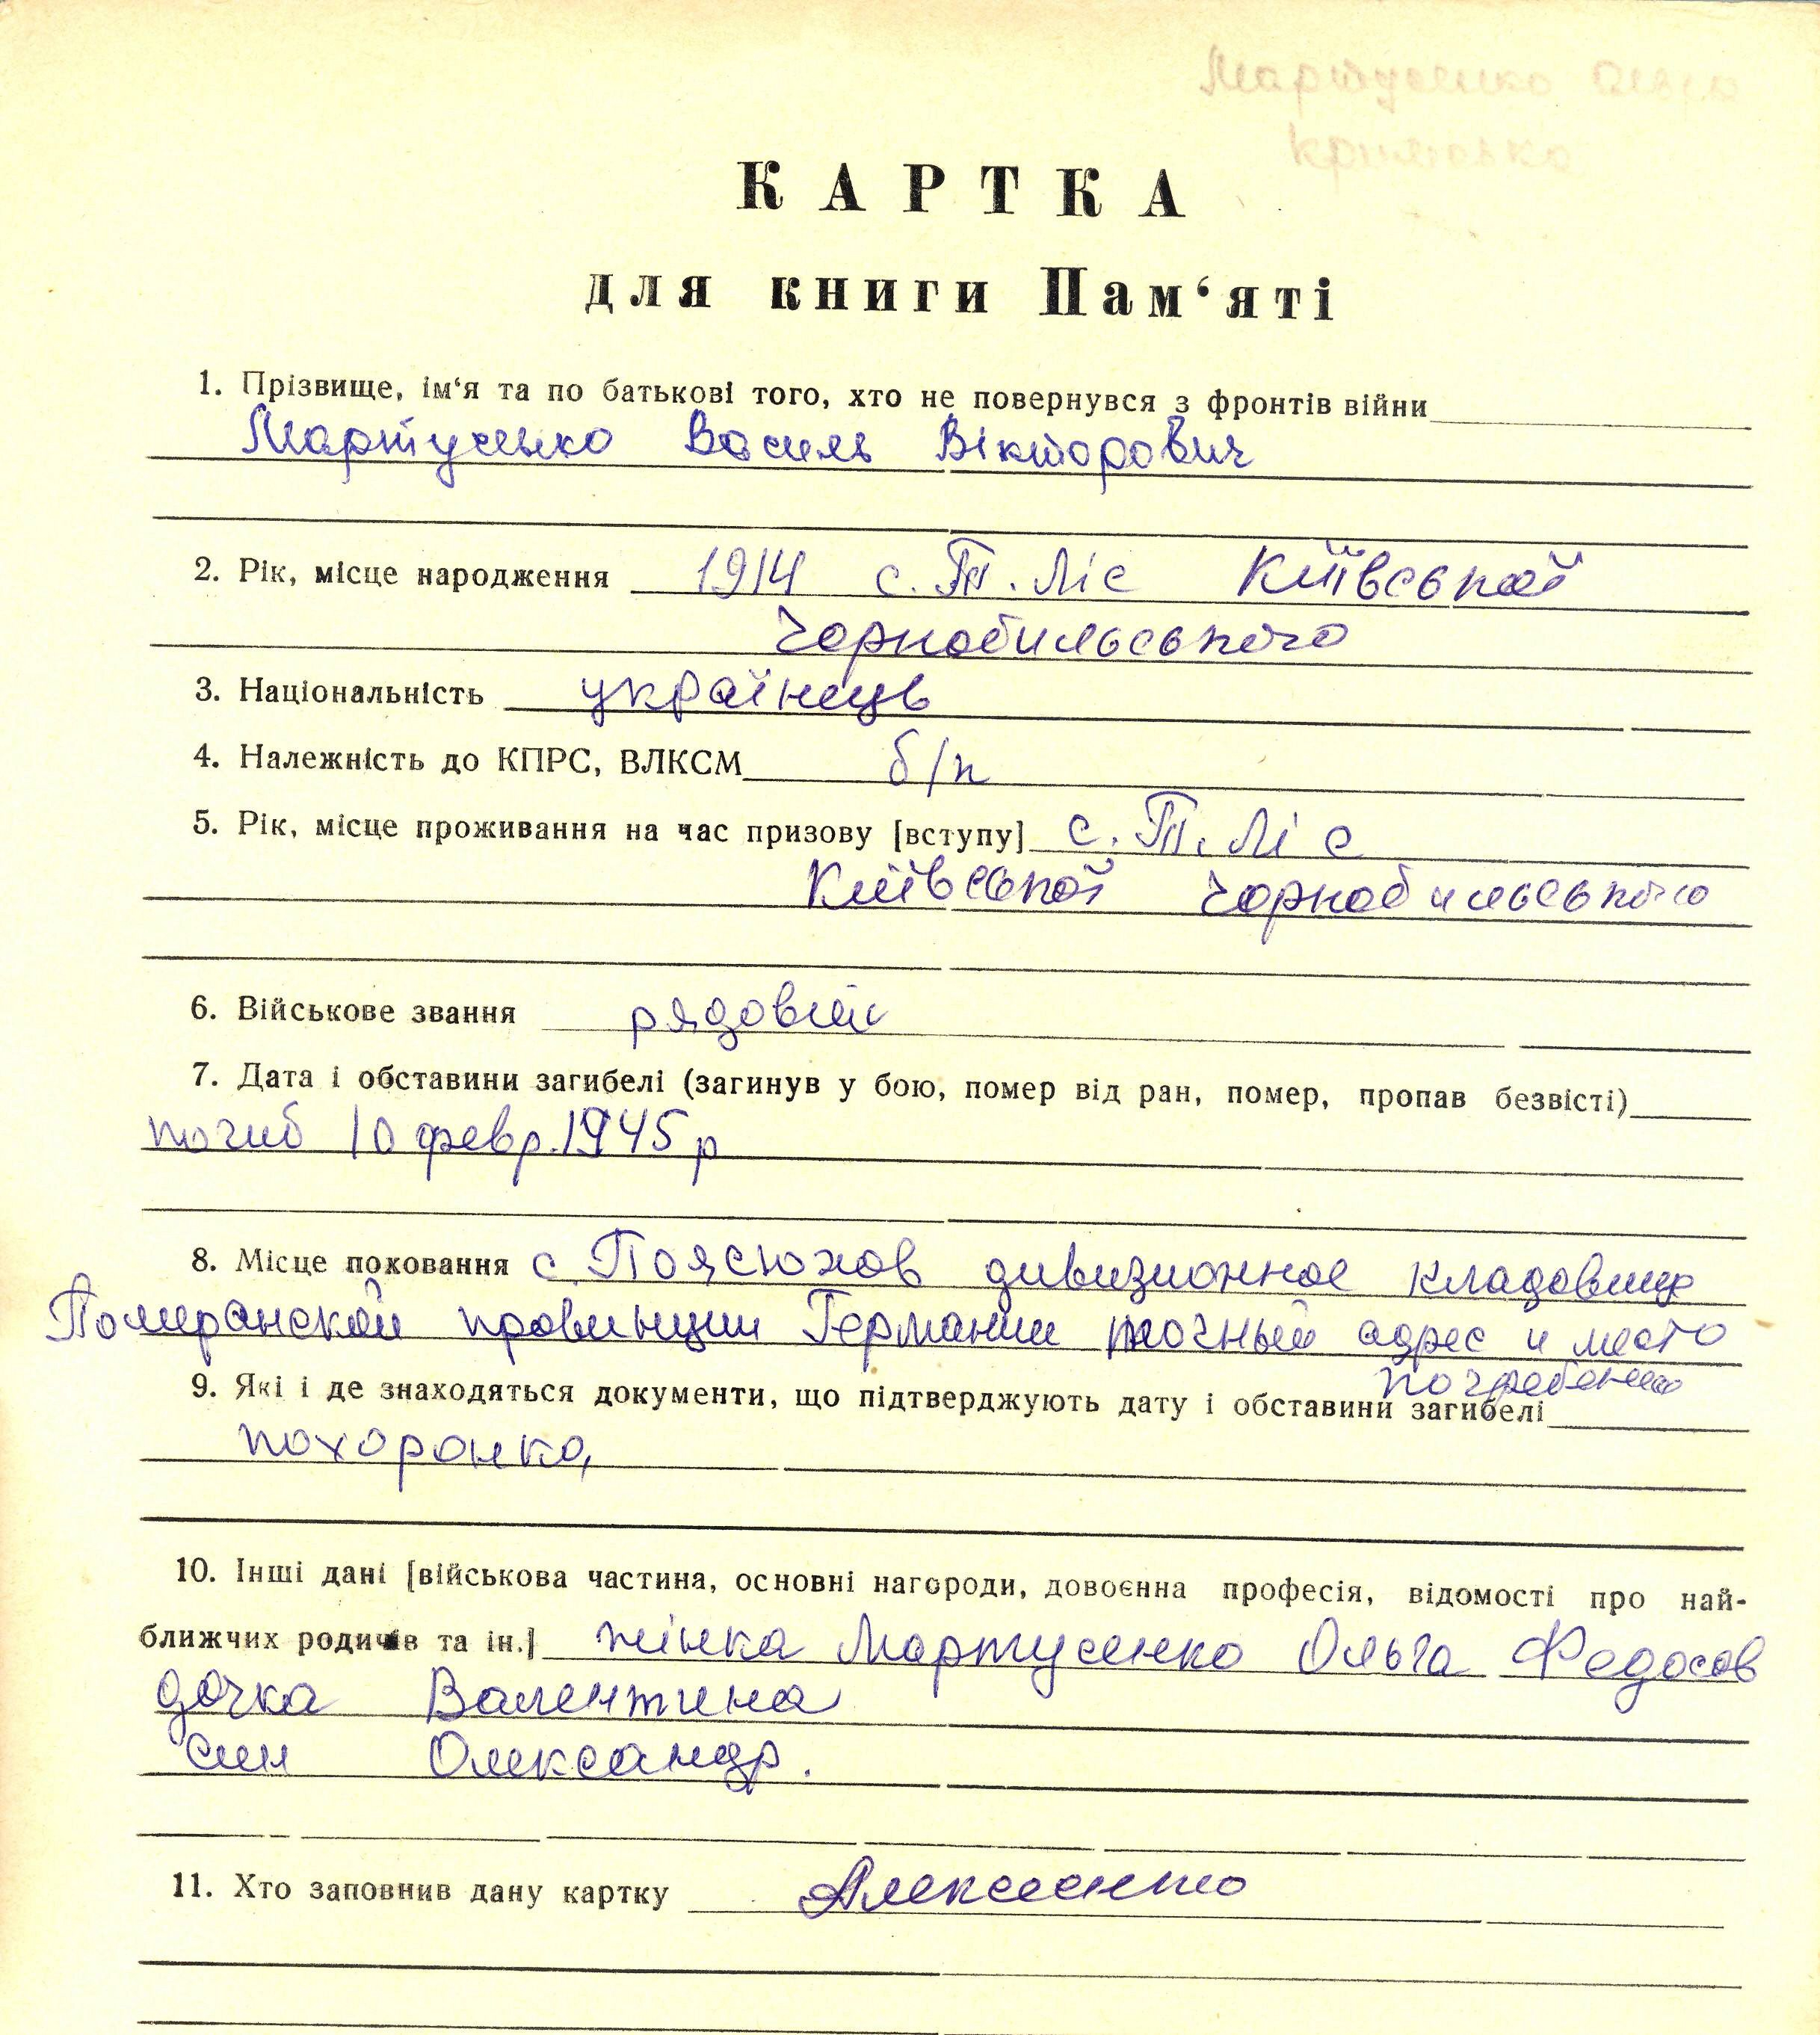 Мартусенко
КАРТКА
для книги Пам‘яті
1. Прізвище, ім‘я та по батькові того, хто не повернувся з фронтів війни
Мартусенко Василь Вікторович
2. Рік, місце народження 1914 с. Т. Ліс Київської
Чорнобильського
3. Національність українець
4. Належність до КПРС, ВЛКСМ б/п
5. Рік, місце проживання на час призову [вступу] с. Т. Ліс
Київської Чорнобильського
6. Військове звання рядовий
7. Дата і обставини загибелі (загинув у бою, помер від ран, помер, пропав безвісті)
погиб 10 февр. 1945 р
8. Місце поховання с. Поясюхов дивизионное кладовище
Померанской провинции Германии точный адрес и место
погребения
9. Які і де знаходяться документи, що підтверджують дату і обставини загибелі
похоронка,
10. Інші дані [військова частина, основні нагороди, довоєнна професія, відомості про най-
ближчих родичів та ін.] жінка Мартусенко Ольга Федосов
дочка Валентина
син Олександр.
11. Хто заповнив дану картку